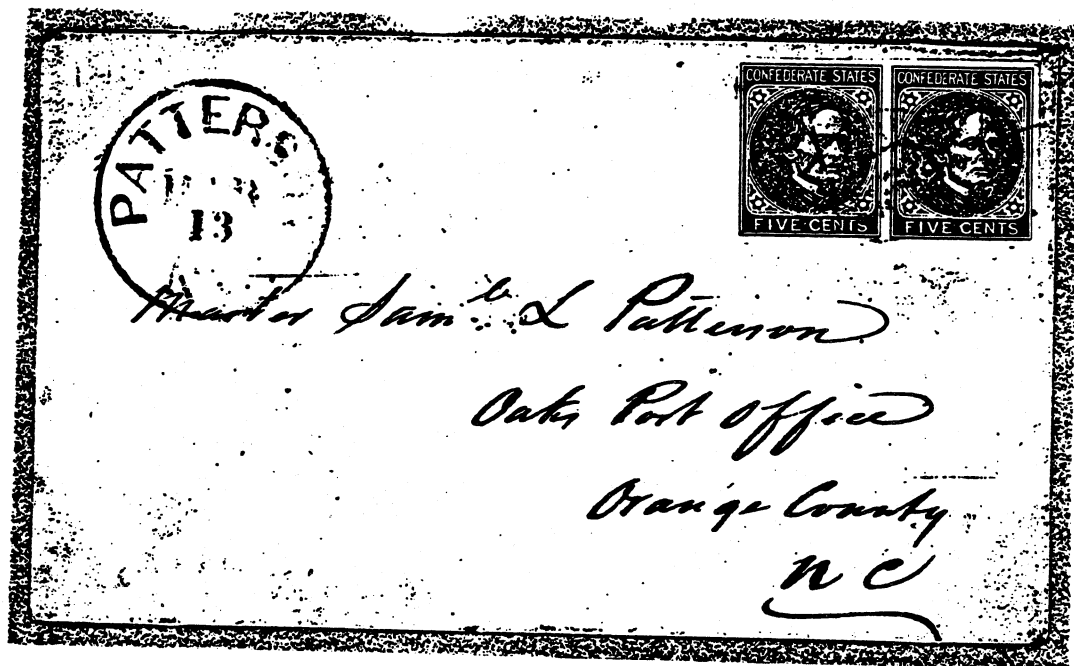 PATTERS
13
CONFEDERATE STATES CONFEDERATE STATES
FIVE CENTS FIVE CENTS
Master Saml L Patterson
Oaks Post Office
Orange County
N C